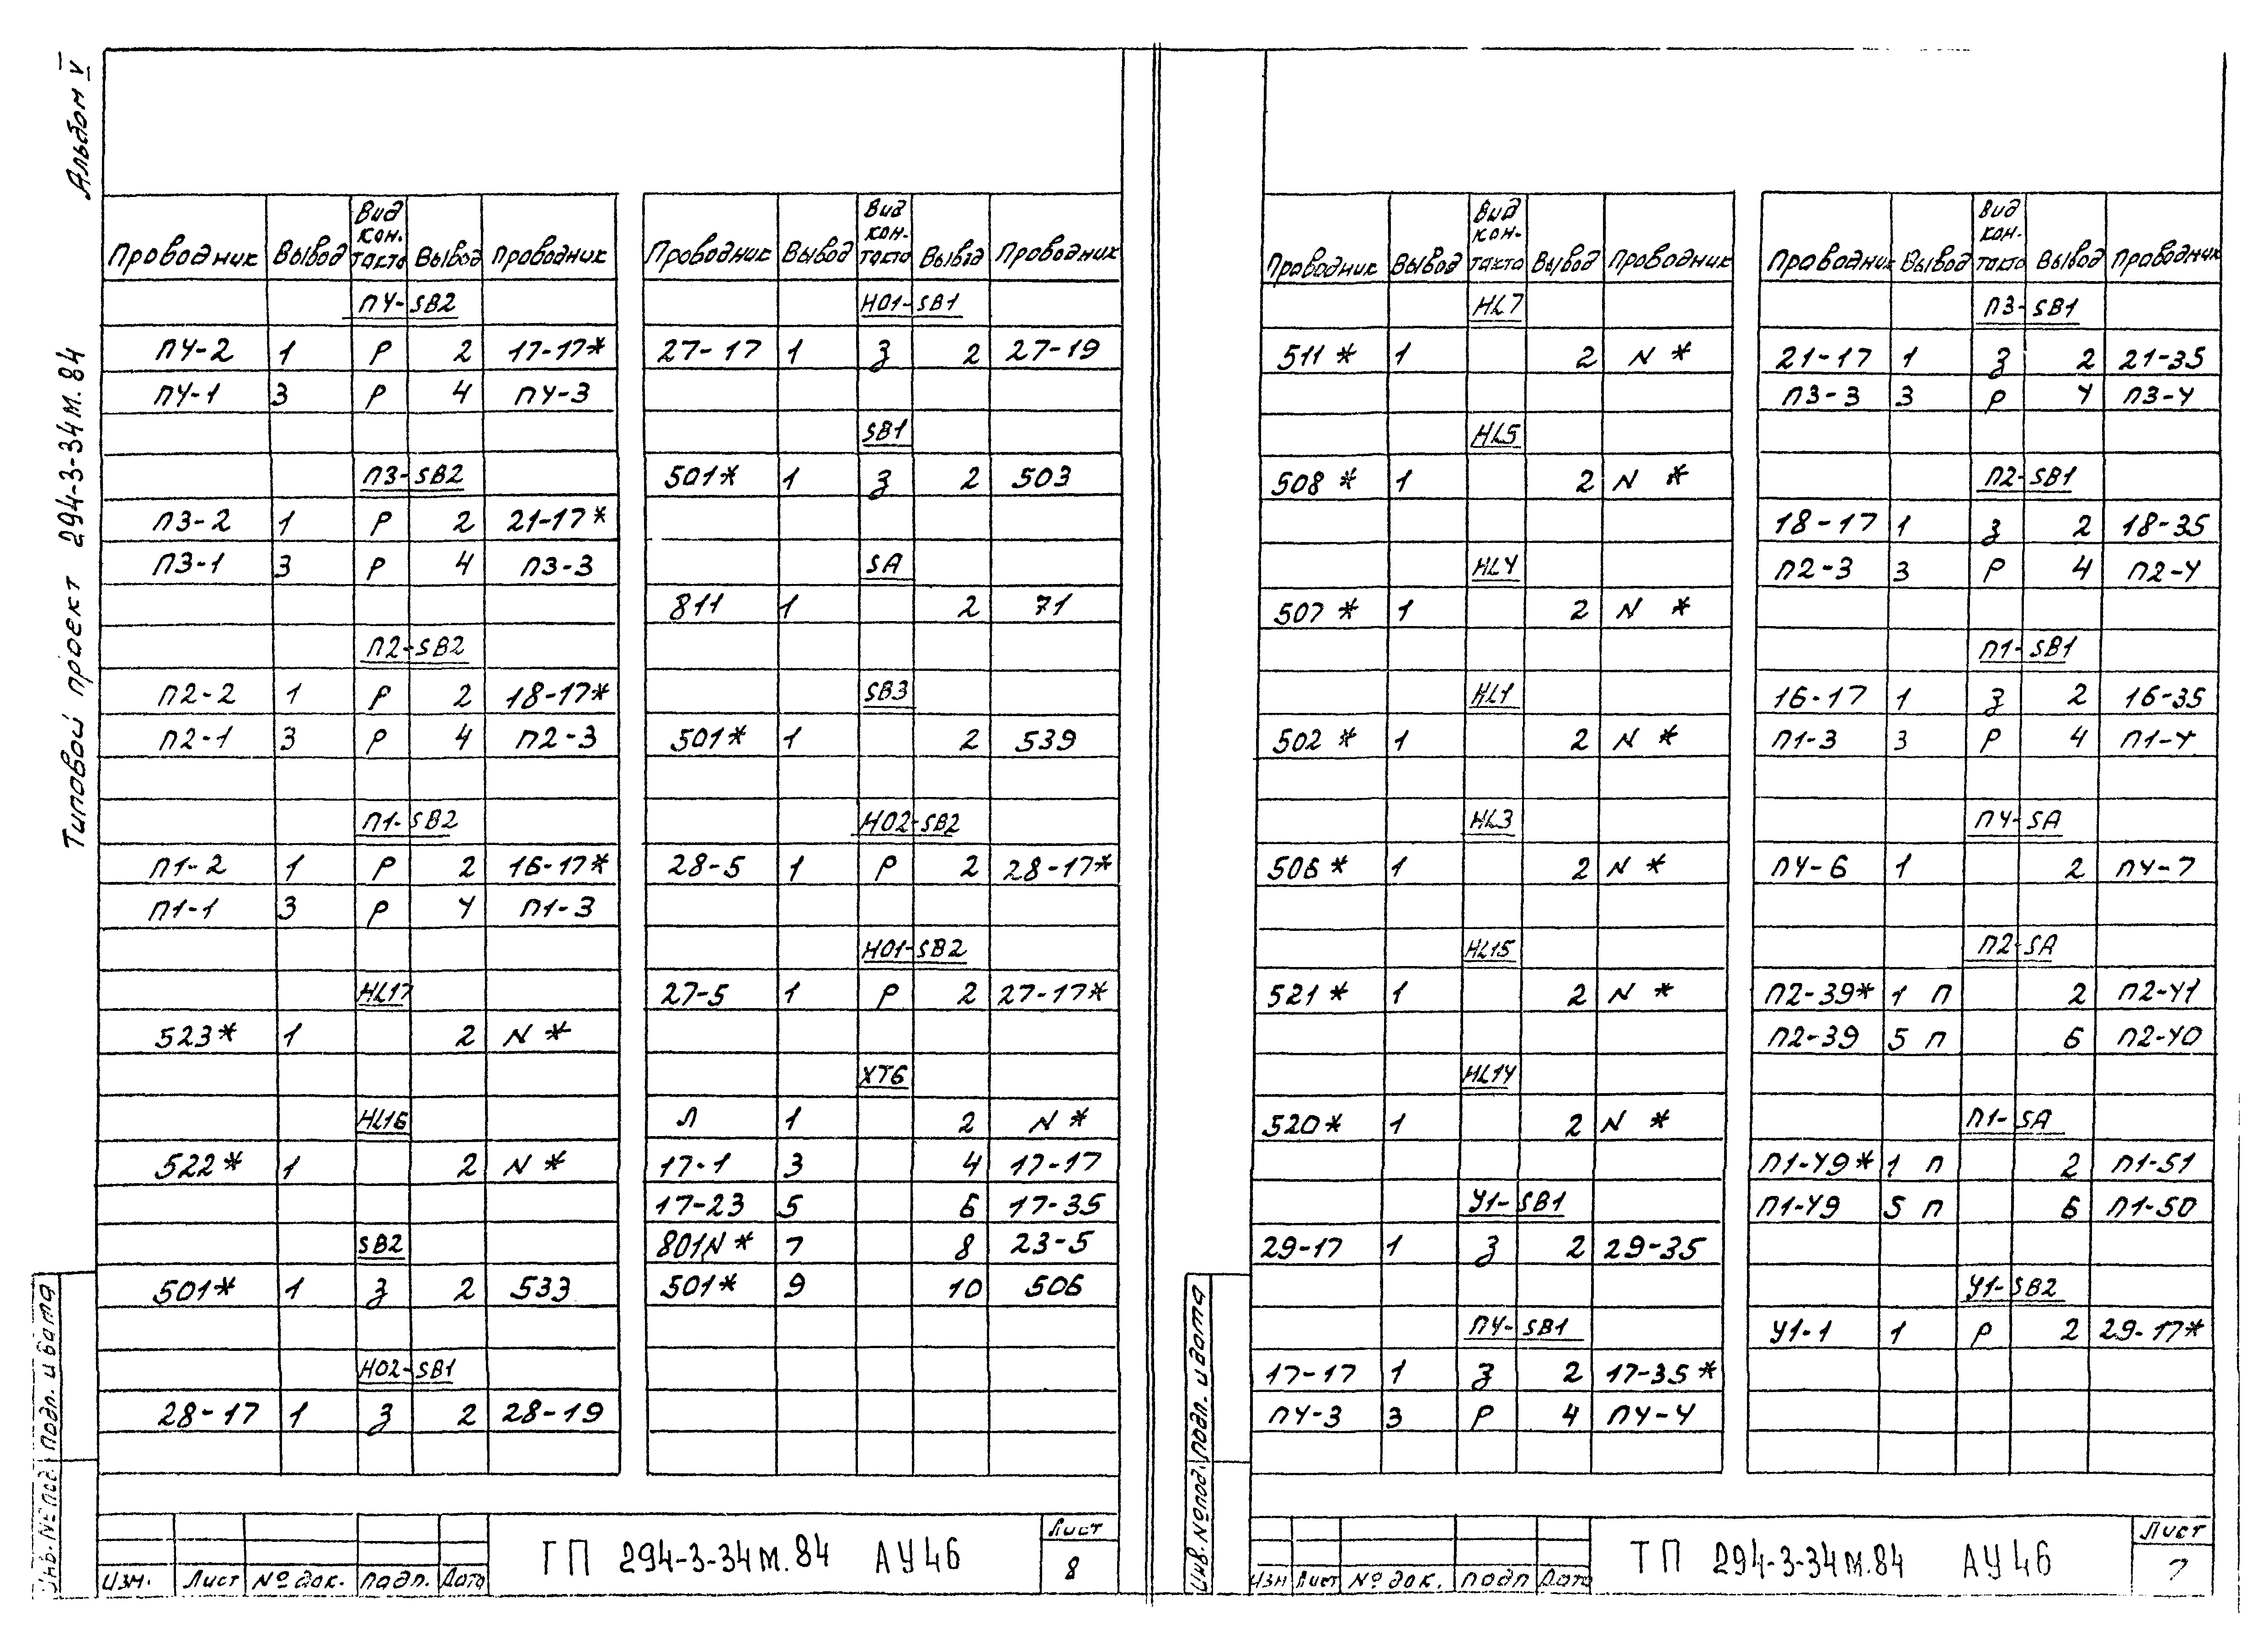 Альбом V
Типовой проект 294-3-34М.84
Проводник Вывод Вид контакта Вывод Проводник
П4-SB2
П4-2 1 Р 2 17-17*
П4-1 3 Р 4 П4-3
П3-SB2
П3-2 1 Р 2 21-17*
П3-1 3 Р 4 П3-3
П2-SB2
П2-2 1 Р 2 18-17*
П2-1 3 Р 4 П2-3
П1-SB2
П1-2 1 Р 2 16-17*
П1-1 3 Р 4 П1-3
HL17
523* 1 2 N *
HL16
522* 1 2 N *
SB2
501* 1 З 2 533
НО2-SB1
28-17 1 З 2 28-19
Проводник Вывод Вид контакта Вывод Проводник
НО1-SB1
27-17 1 З 2 27-19
SB1
501* 1 З 2 503
SA
811 1 2 71
SB3
501* 1 2 539
НО2-SB2
28-5 1 Р 2 28-17*
НО1-SB2
27-5 1 Р 2 27-17*
XT6
Л 1 2 N *
17-1 3 4 17-17
17-23 5 6 17-35
801N * 7 8 23-5
501* 9 10 506
Инв.№ подл. Подп. и дата
Изм. Лист № док. Подп. Дата
ТП 294-3-34М.84 АУ46
Лист
8
Проводник Вывод Вид контакта Вывод Проводник
HL7
511 * 1 2 N *
HL5
508 * 1 2 N *
HL4
507 * 1 2 N *
HL1
502 * 1 2 N *
HL3
506 * 1 2 N *
HL15
521 * 1 2 N *
HL14
520 * 1 2 N *
У1-SB1
29-17 1 З 2 29-35
П4-SB1
17-17 1 З 2 17-35 *
П4-3 3 Р 4 П4-4
Проводник Вывод Вид контакта Вывод Проводник
П3-SB1
21-17 1 З 2 21-35
П3-3 3 Р 4 П3-4
П2-SB1
18-17 1 З 2 18-35
П2-3 3 Р 4 П2-4
П1-SB1
16-17 1 З 2 16-35
П1-3 3 Р 4 П1-4
П4-SA
П4-6 1 2 П4-7
П2-SA
П2-39* 1 П 2 П2-41
П2-39 5 П 6 П2-40
П1-SA
П1-49* 1 П 2 П1-51
П1-49 5 П 6 П1-50
У1-SB2
У1-1 1 Р 2 29-17*
Инв.№ подл. Подп. и дата
Изм Лист № док. Подп Дата
ТП 294-3-34М.84 АУ46
Лист
7